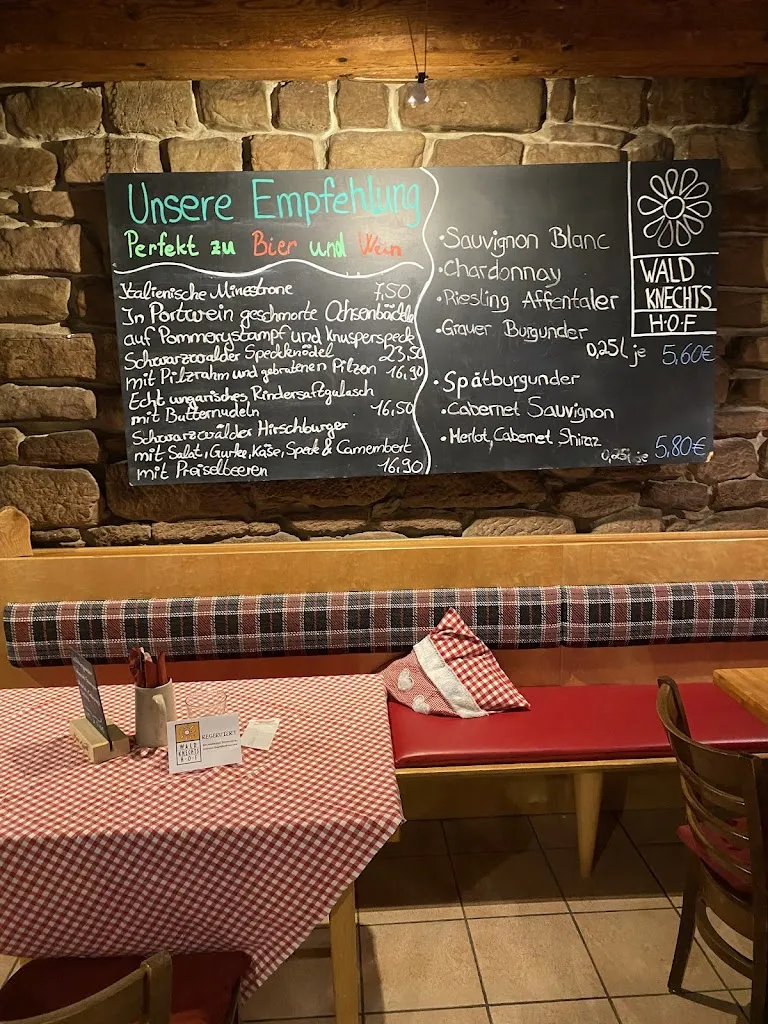 Unsere Empfehlung
Perfekt zu Bier und Wein
Italienische Minestrone 7,50
In Portwein geschmorte Ochsenbäckle
auf Pommerystampf und Knusperspeck
23,50
Schwarzwälder Speckknödel
mit Pilzrahm und gebratenen Pilzen 16,90
Echt ungarisches Rindersaftgulasch
mit Butternudeln 16,50
Schwarzwälder Hirschburger
mit Salat, Gurke, Käse, Speck & Camembert
mit Preiselbeeren 16,90
·Sauvignon Blanc
·Chardonnay
·Riesling Affentaler
·Grauer Burgunder
0,25l je 5,60€
·Spätburgunder
·Cabernet Sauvignon
·Merlot, Cabernet Shiraz
0,25l je 5,80€
WALD
KNECHTS
H·O·F
WALD
KNECHTS
H·O·F
RESERVIERT